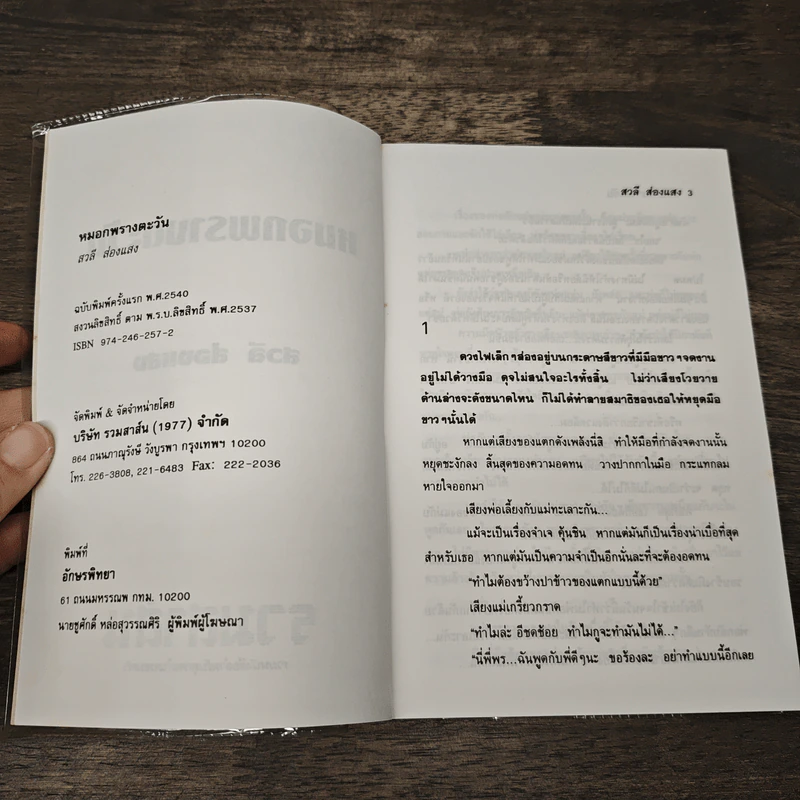 หมอกพรางตะวัน
สวลี ส่องแสง
ฉบับพิมพ์ครั้งแรก พ.ศ.2540
สงวนลิขสิทธิ์ ตาม พ.ร.บ.ลิขสิทธิ์ พ.ศ.2537
ISBN 974-246-257-2
จัดพิมพ์ & จัดจำหน่ายโดย
บริษัท รวมสาส์น (1977) จำกัด
864 ถนนภาณุรังษี วังบูรพา กรุงเทพฯ 10200
โทร. 226-3808, 221-6483 Fax: 222-2036
พิมพ์ที่
อักษรพิทยา
61 ถนนมหรรณพ กทม. 10200
นายชูศักดิ์ หล่อสุวรรณศิริ ผู้พิมพ์ผู้โฆษณา
สวลี ส่องแสง 3
1
ดวงไฟเล็กๆส่องอยู่บนกระดาษสีขาวที่มีมือขาวๆจดงาน
อยู่ไม่ได้วางมือ ดุจไม่สนใจอะไรทั้งสิ้น ไม่ว่าเสียงโวยวาย
ด้านล่างจะดังขนาดไหน ก็ไม่ได้ทำลายสมาธิของเธอให้หยุดมือ
ขาวๆนั้นได้
หากแต่เสียงของแตกดังเพล้งนี่สิ ทำให้มือที่กำลังจดงานนั้น
หยุดชะงักลง สิ้นสุดของความอดทน วางปากกาในมือ กระแทกลม
หายใจออกมา
เสียงพ่อเลี้ยงกับแม่ทะเลาะกัน...
แม้จะเป็นเรื่องจำเจ คุ้นชิน หากแต่มันก็เป็นเรื่องน่าเบื่อที่สุด
สำหรับเธอ หากแต่มันเป็นความจำเป็นอีกนั่นละที่จะต้องอดทน
“ทำไมต้องขว้างปาข้าวของแตกแบบนี้ด้วย”
เสียงแม่เกรี้ยวกราด
“ทำไมล่ะ อีชดช้อย ทำไมกูจะทำมันไม่ได้...”
“นี่พี่พร...ฉันพูดกับพี่ดีๆนะ ขอร้องละ อย่าทำแบบนี้อีกเลย